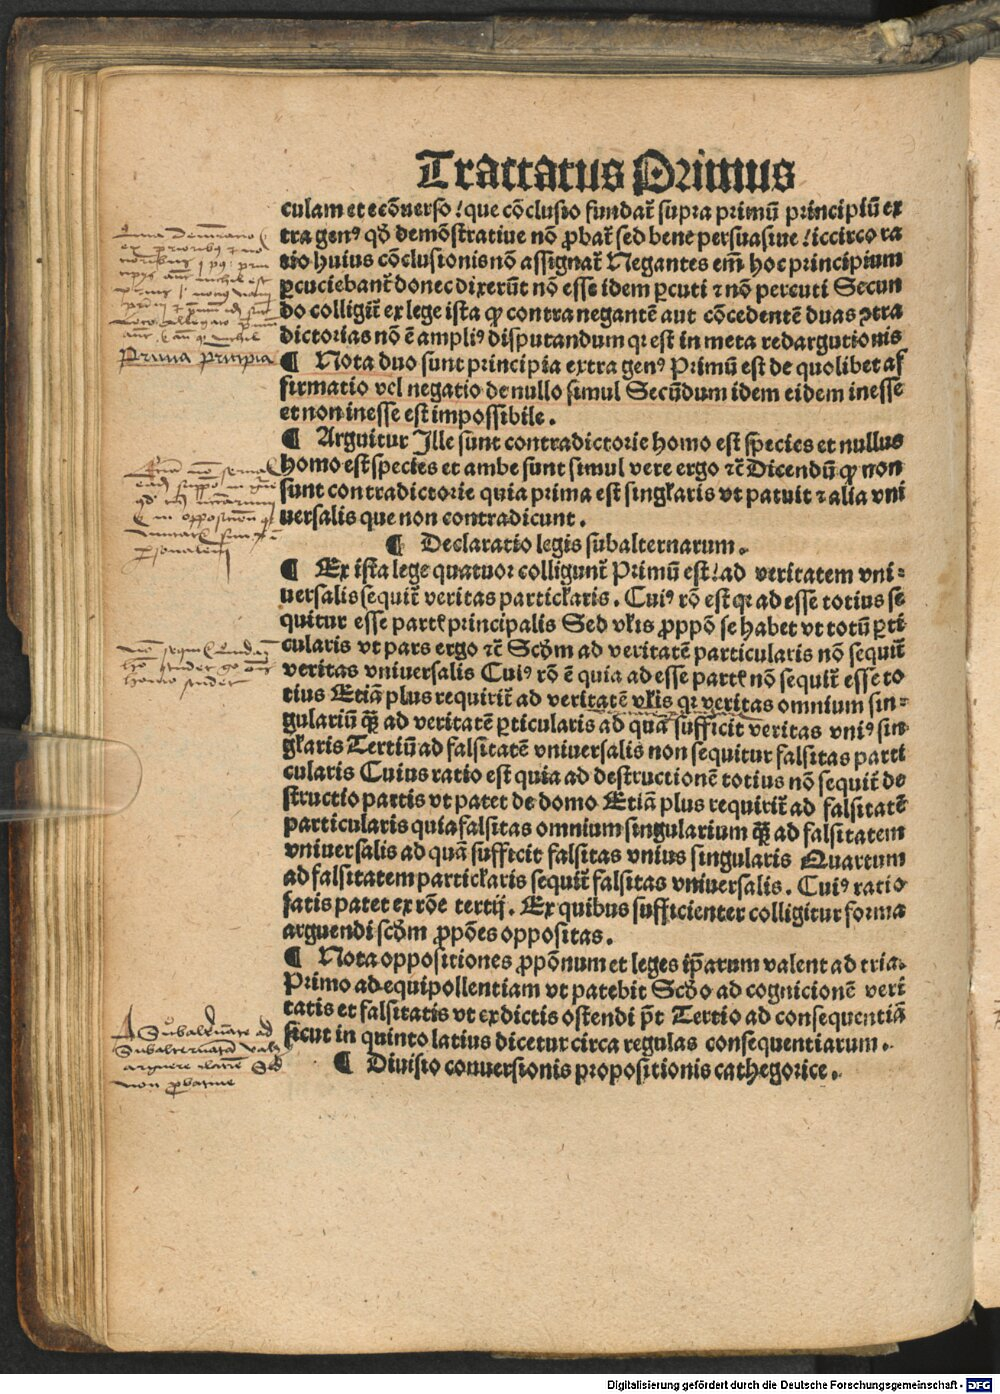 Tractatus Primus
culam et ecõuerso / que cõclusio fundat᷑ supra primũ principiũ ex
tra genꝰ qd̕ demõstratiue nõ ꝓbat᷑ sed bene persuasiue / iccirco ra
tio huius cõclusionis nõ assignat᷑ Negantes em̃ hoc principium
ꝑcuciebant᷑ donec dixerũt nõ esse idem ꝑcuti ⁊ nõ percuti Secun
do colligit᷑ ex lege ista ꝙ contra negantẽ aut cõcedentẽ duas ꝯtra
dictorias nõ ẽ ampliꝰ disputandum qꝛ est in meta redargutionis
¶ Nota duo sunt principia extra genꝰ Primũ est de quolibet af
firmatio vel negatio de nullo simul Secũdum idem eidem inesse
et non inesse est impossibile.
¶ Arguitur Ille sunt contradictorie homo est species et nullus
homo est species et ambe sunt simul vere ergo ⁊c̃ Dicendũ ꝙ non
sunt contradictorie quia prima est singl̕aris vt patuit ⁊ alia vni
uersalis que non contradicunt.
¶ Declaratio legis subalternarum.
¶ Ex ista lege quatuor colligunt᷑ Primũ est / ad veritatem vni⸗
uersalis sequit᷑ veritas particl̕aris. Cuiꝰ rõ est qꝛ ad esse totius se
quitur esse partꝭ principalis Sed vl̕is ꝓppõ se habet vt totũ ꝑti
cularis vt pars ergo ⁊c̃ Scd̕m ad veritatẽ particularis nõ sequit᷑
veritas vniuersalis Cuiꝰ rõ ẽ quia ad esse partꝭ nõ sequit᷑ esse to
tius Etiã plus requirit᷑ ad veritatẽ vl̕is qꝛ veritas omnium sin⸗
gulariũ qᷓꝫ ad veritatẽ ꝑticularis ad quã sufficit veritas vniꝰ sin
gl̕aris Tertiũ ad falsitatẽ vniuersalis non sequitur falsitas parti
cularis Cuius ratio est quia ad destructionẽ totius nõ sequit᷑ de
structio partis vt patet de domo Etiã plus requirit᷑ ad falsitatẽ
particularis quia falsitas omnium singularium qᷓꝫ ad falsitatem
vniuersalis ad quã sufficit falsitas vnius singularis Quartum
ad falsitatem particl̕aris sequit᷑ falsitas vniuersalis. Cuiꝰ ratio
satis patet ex rõe tertij. Ex quibus sufficienter colligitur forma
arguendi scd̕m ꝓpões oppositas.
¶ Nota oppositiones ꝓpõnum et leges ip̃arum valent ad tria.
Primo ad equipollentiam vt patebit Scd̕o ad cognicionẽ veri
tatis et falsitatis vt ex dictis ostendi p̃t Tertio ad consequentiã
sicut in quinto latius dicetur circa regulas consequentiarum.
¶ Diuisio conuersionis propositionis cathegorice.
Prima principia
Subalternate ad
Subalternatã
arguere
non
Digitalisierung gefördert durch die Deutsche Forschungsgemeinschaft - DFG